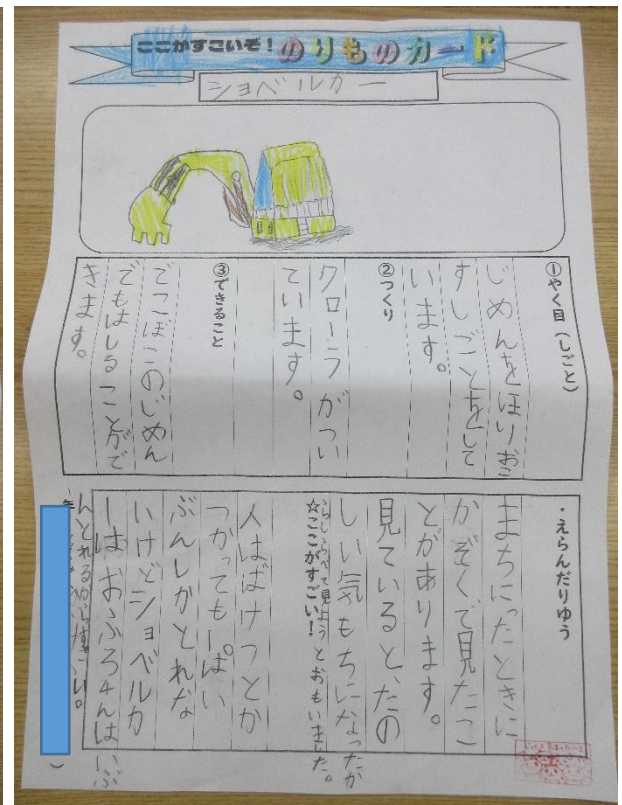 ここがすごいぞ！のりものカード
ショベルカー
①やく目（しごと）
じめんをほりおこ
すしごとをして
います。
②つくり
クローラがつい
ています。
③できること
でこぼこのじめん
でもはしることがで
きます。
・えらんだりゆう
まちにったときに
かぞくで見たこ
とがあります。
見ているとたの
しい気もちになったか
らしらべて見よう
とおもいました。
☆ここがすごい！
人はばけつとか
つかっても一ぱい
ぶんしかとれな
いけどショベルカ
ーはおふろ4はいぶ
んとれるからすごい。